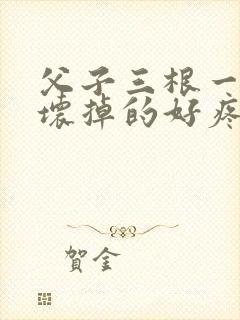 父子三根一
壞掉的好疼
賀金